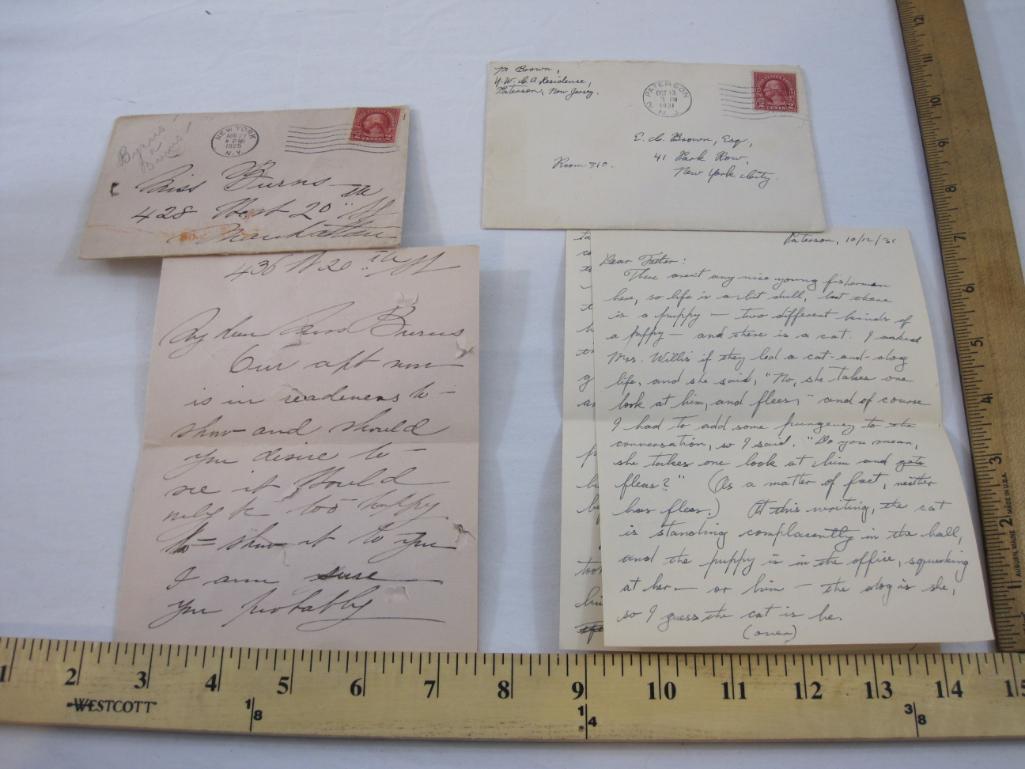 Byrnes
NEW YORK
N.Y.
1925
Miss Burns
428 West 20" St
Manhattan
436 W 20th St
My dear Miss Burns
Our apt now
is in readiness to
show and should
you desire to
see it would
only be too happy
to show it to you
I am sure
you probably
M Brown,
Y.W.C.A Residence,
Paterson, New Jersey.
PATERSON
1931
N.J.
E. C. Brown, Esq,
Room 310.
41 Park Row,
New York City.
Paterson, 10/12/31
Dear Father:
There aren't any nice young fisherman
here, so life is a bit dull, but there
is a puppy — two different kinds of
a puppy — and there is a cat. I asked
Mrs. Willis if they led a cat-and-dog
life, and she said, "No, she takes one
look at him, and flees," and of course
I had to add some pungency to the
conversation, so I said, "Do you mean,
she takes one look at him and gets
fleas?" (As a matter of fact, neither
has fleas.) At this writing, the cat
is standing complacently in the hall,
and the puppy is in the office, squeaking
at her — or him — the dog is she,
so I guess the cat is he.
(over)
1 2 3 4 5 6 7 8 9 10 11 12 13 14 15
WESTCOTT
1/8
1/4
3/8
12
11
10
9
8
7
6
5
4
3
2
MADE IN U.S.A.